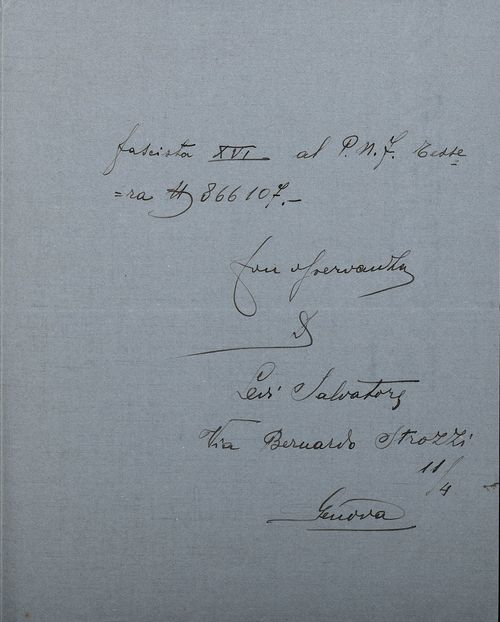 fascista XVI al P.N.F. Tesse=
=ra N 866107.-
Con osservanza
Levi Salvatore
Via Bernardo Strozzi
11/4
Genova